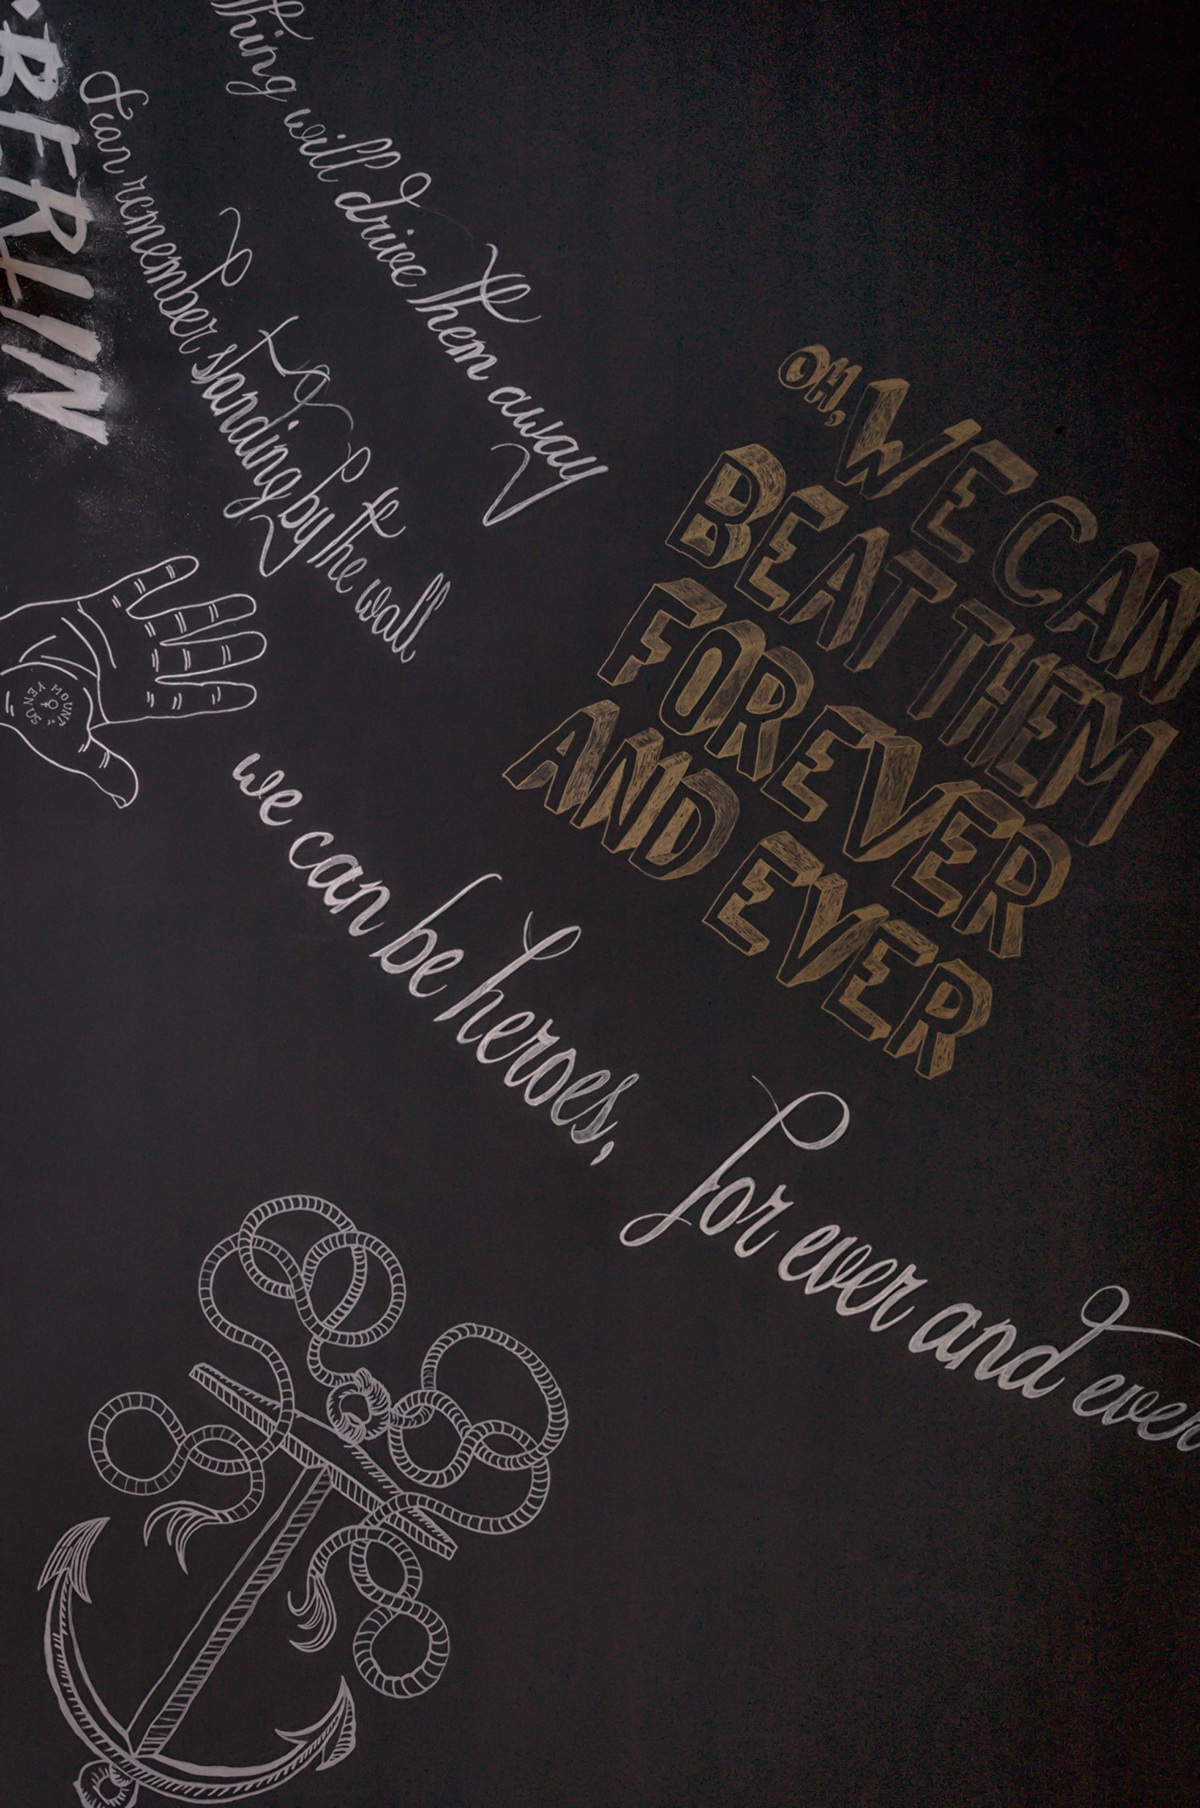 thing will drive them away
BERLIN
I can remember standing by the wall
MOUNT OF VENUS
OH, WE CAN
BEAT THEM
FOREVER
AND EVER
we can be heroes,
for ever and ever